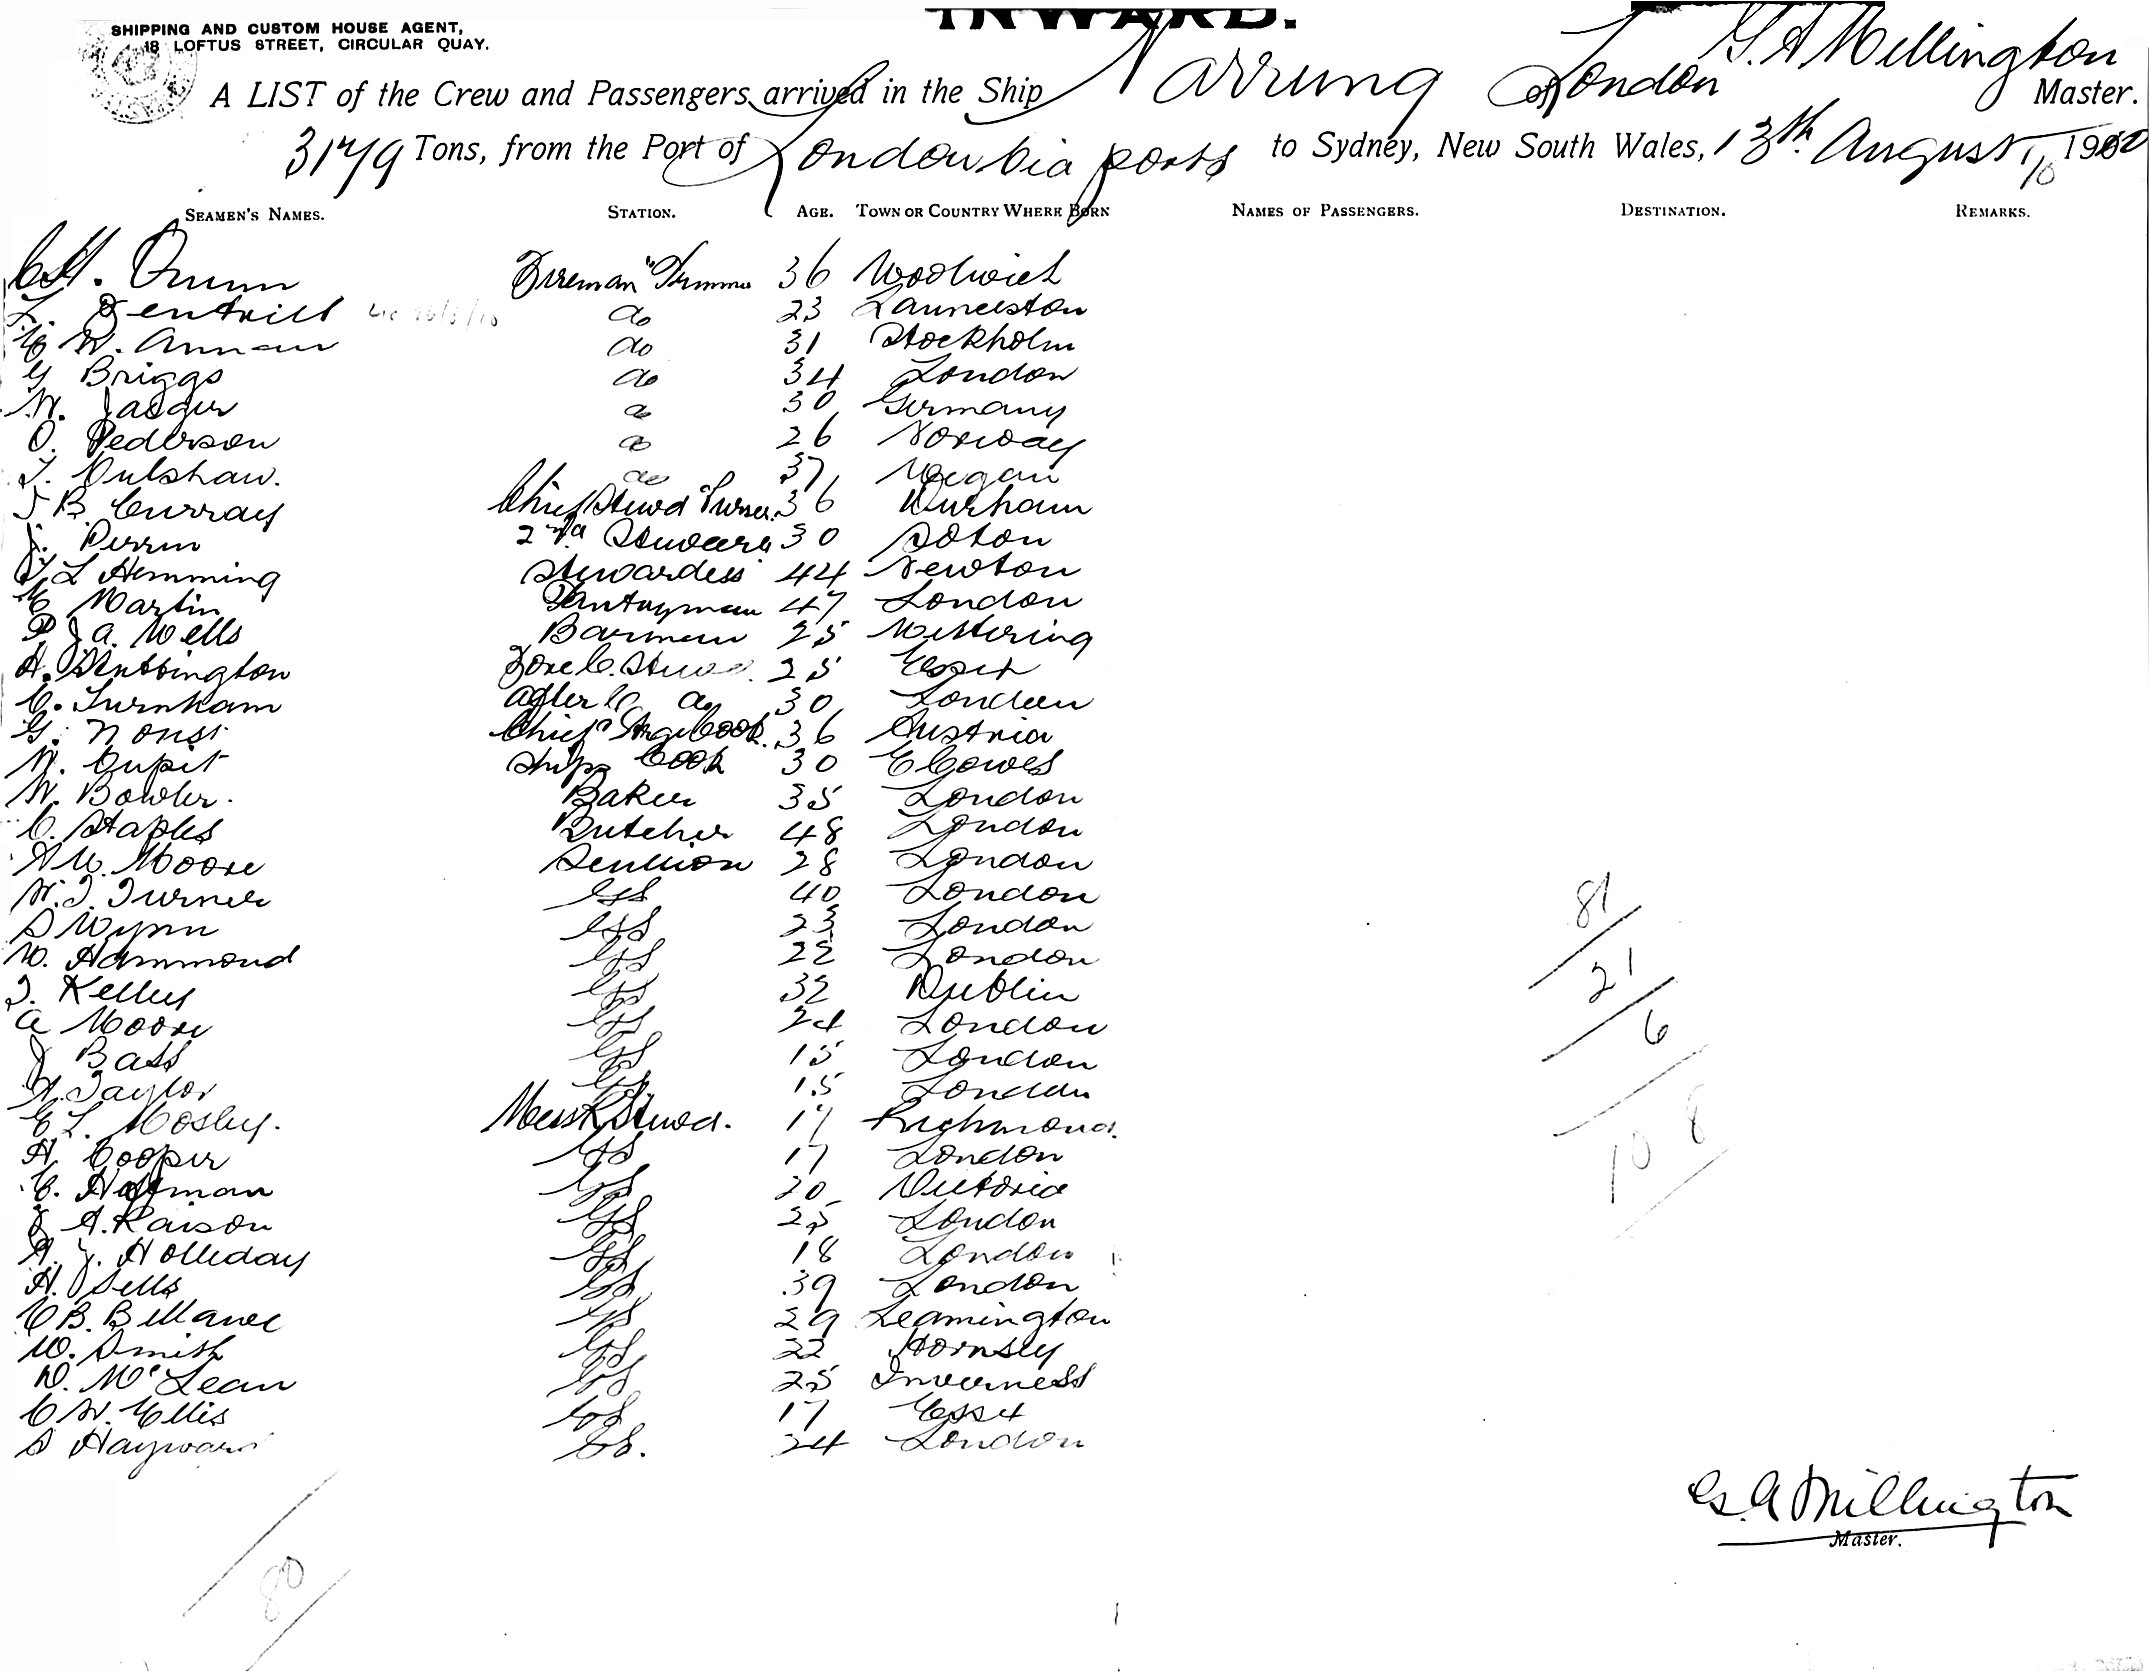 INWARD.
SHIPPING AND CUSTOM HOUSE AGENT,
18 LOFTUS STREET, CIRCULAR QUAY.
A LIST of the Crew and Passengers arrived in the Ship Narrung of London G. A Millington Master.
3179 Tons, from the Port of London via ports to Sydney, New South Wales, 13th August 1910
SEAMEN'S NAMES. STATION. AGE. TOWN OR COUNTRY WHERE BORN NAMES OF PASSENGERS. DESTINATION. REMARKS.
Quinn Fireman Trimmer 36 Woolwich
do 23 Launceston
W. do 31 Stockholm
G Briggs do 34 London
W. Jaeger do 30 Germany
O. Pederson do 26 Norway
T. Culshaw. do 37 Wigan
J B. Curray Chief Stewd Purser 36 Durham
J. Perrin 2nd Steward 30 Soton
L Hemming Stewardess 44 Newton
E Martin Pantryman 47 London
P J A. Wells Barman 25 Kettering
H. Stubbington Fore C. Stewd. 25 Essex
C. Turnham After C do 30 London
G. Chief Cook. 36 Austria
W. Cupit Ships Cook 30 E Cowes
W. Bowler. Baker 35 London
C. Staples Butcher 48 London
A W. Moore Scullion 28 London
W. J. Turner GS 40 London
S Wynn GS 23 London
W. Hammond GS 22 London
J. Kelley GS 32 Dublin
A Moore GS 24 London
J Bass GS 15 London
A. Taylor GS 15 London
E L. Mosley. Mess R Stewd. 17 Richmond.
H. Cooper GS 17 London
C. Hoffman GS 20 Victoria
J A. Raison GS 25 London
A. J. Holliday GS 18 London
H. Sells GS 39 London
C B. Bellanee GS 29 Leamington
W. Smith GS 22 Hornsey
D. McLean GS 25 Inverness
C W. Ellis GS 17 Essex
S Hayward GS. 24 London
81
21
6
108
G. A Millington
Master.
80